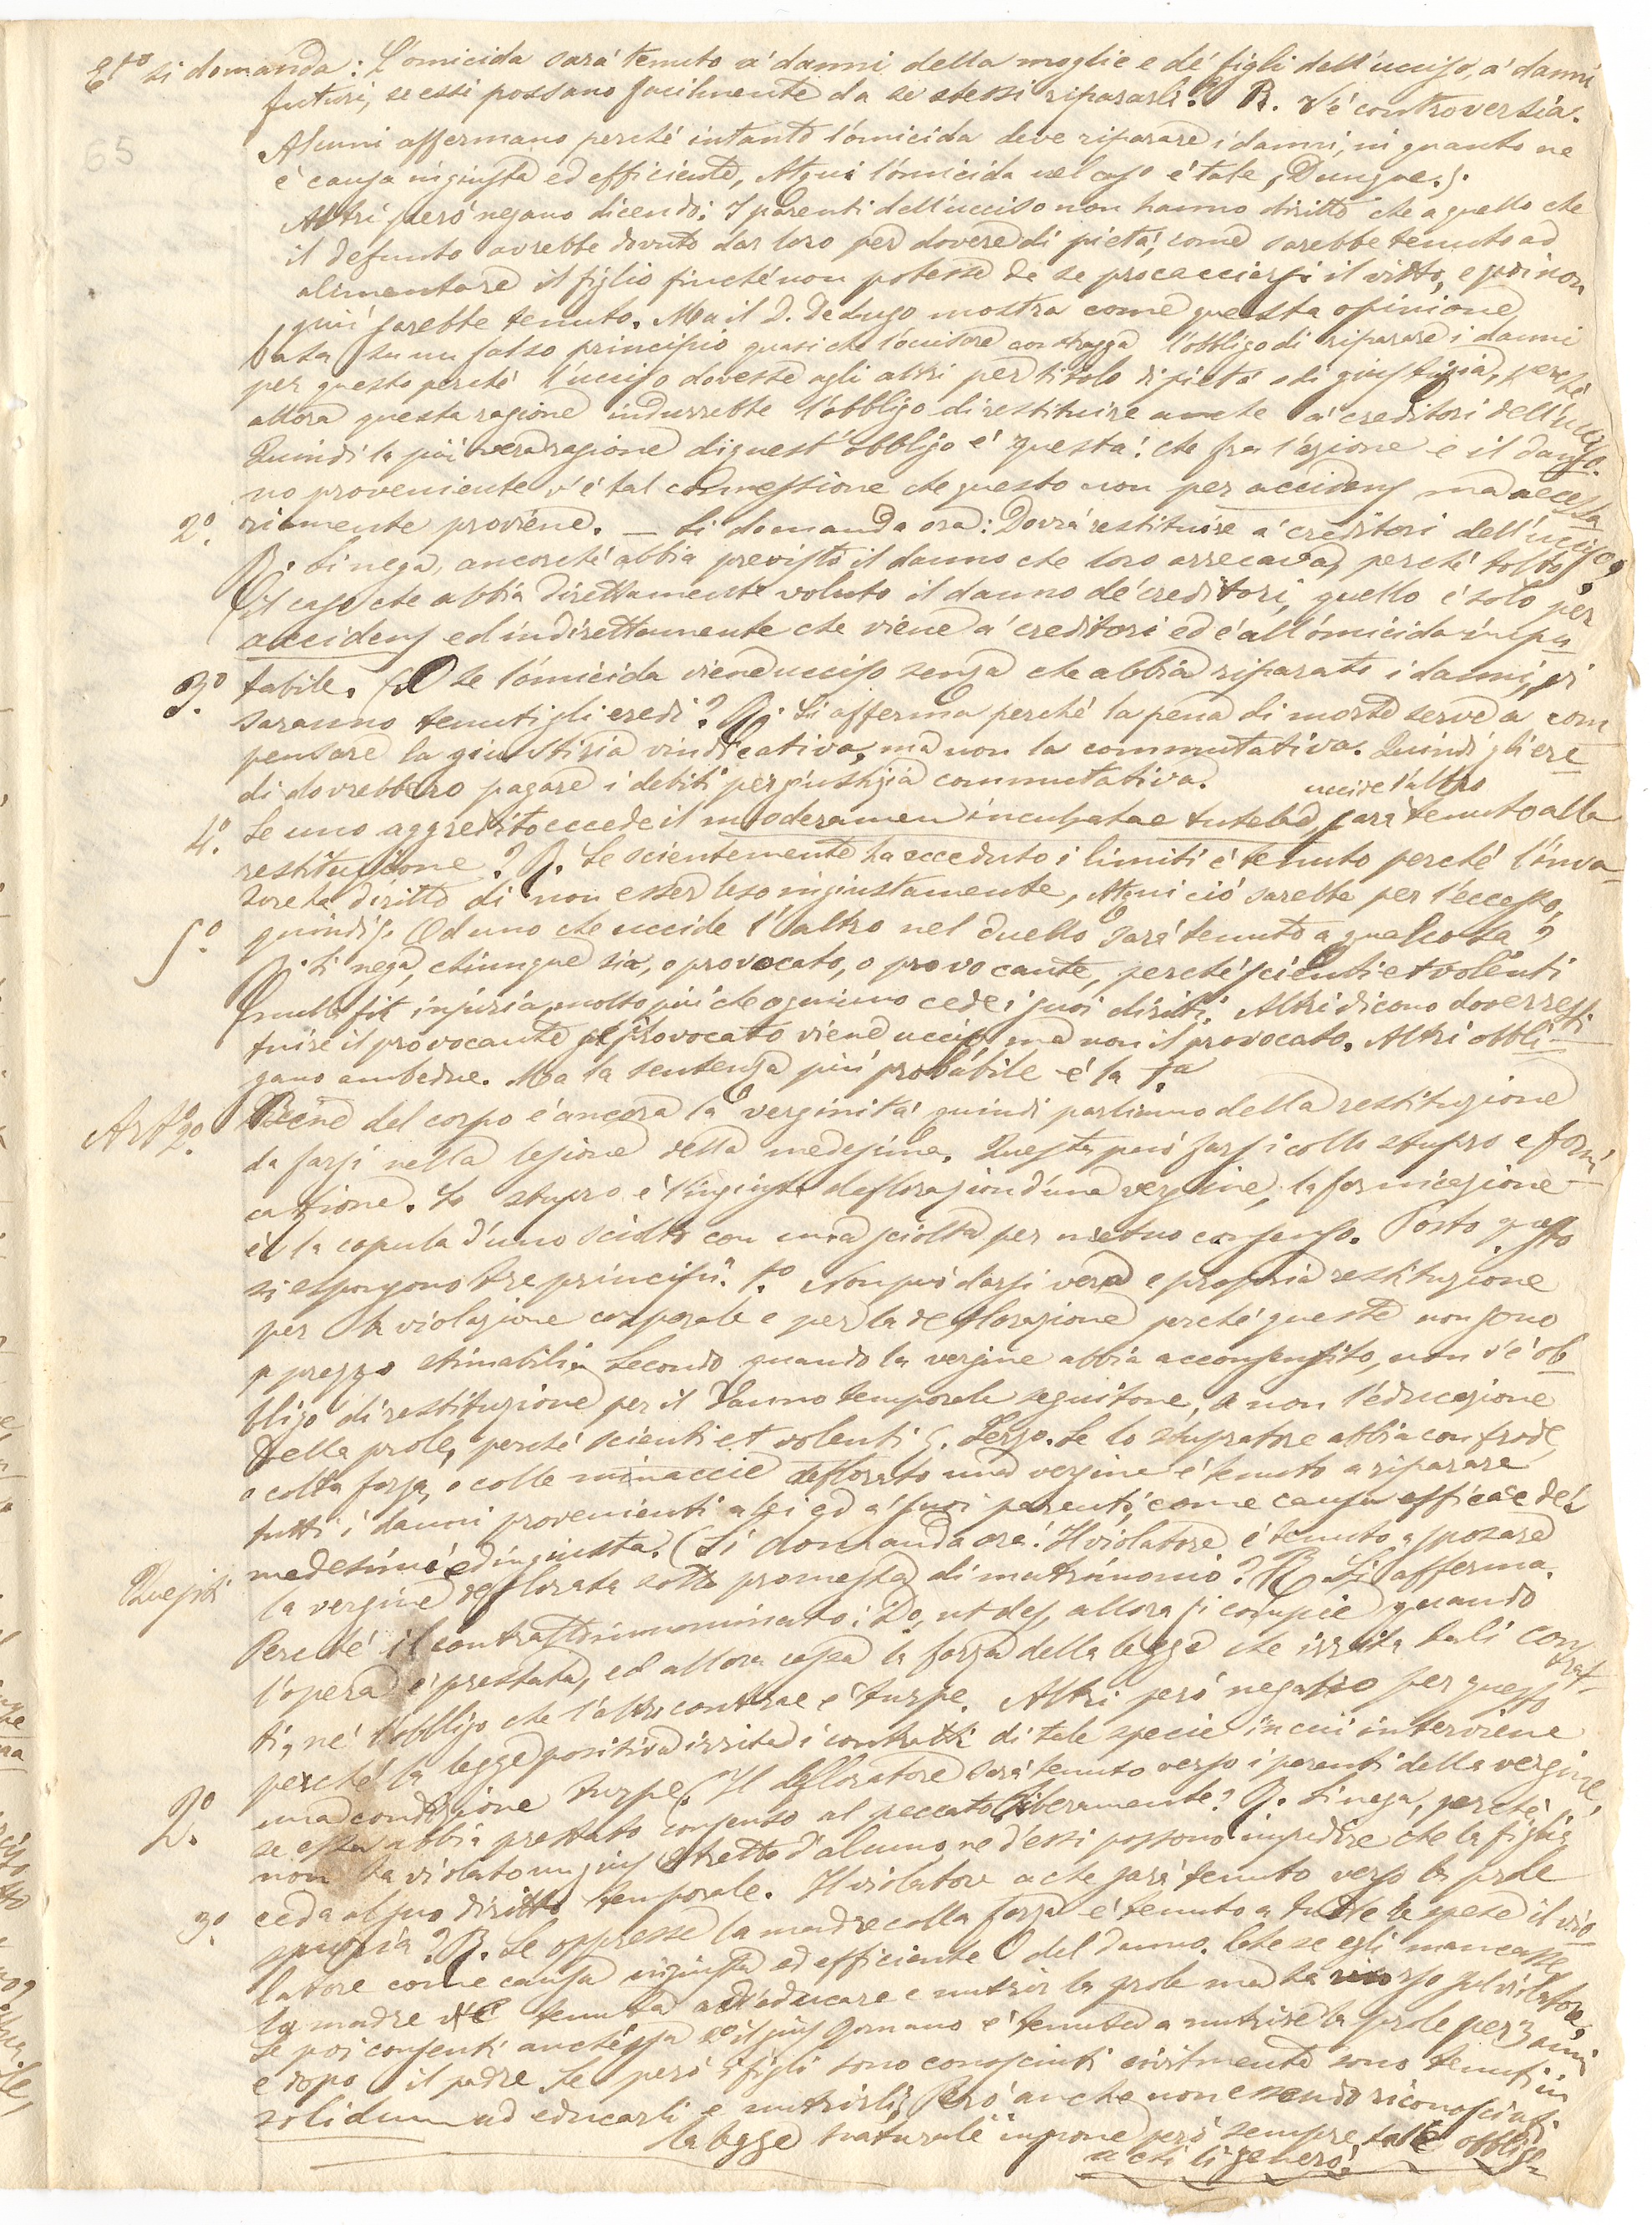 65
1to si domanda: L'omicida sará tenuto a' danni della moglie e de' figli dell'ucciso, a' danni
futuri, se essi possano facilmente da se stessi ripararli? R. V'é controversia.
Alcuni affermano perché intanto l'omicida deve riparare i danni, in quanto ne
é causa ingiusta ed efficiente, Atqui l'omicida nel caso é tale, Dunque.).
Altri peró negano dicendo: I parenti dell'ucciso non hanno diritto che a quello che
il defunto avrebbe dovuto dar loro per dovere di pietá, come sarebbe tenuto ad
alimentare il figlio finché non potesse da se procacciarsi il vitto, e poi non
piú sarebbe tenuto. Ma il D. De Lugo mostra come questa opinione
basa su un falso principio quasi che l'uccisore contragga l'obbligo di riparare i danni
per questo perché l'ucciso dovesse agli altri per titolo di pietá o di giustizia, perché
allora questa ragione indurrebbe l'obbligo di restituire anche a' creditori dell'ucciso.
Quindi la piú vera ragione di quest'obbligo é questa: che fra l'azione e il dan-
no proveniente v'é tal connessione che questo non per accidens ma necessa-
2o. riamente proviene. — Si domanda ora: Dovrá restituire a' creditori dell'ucciso?
R. Si nega, ancorché abbia previsto il danno che loro arrecava, perché tolto
il caso che abbia direttamente voluto il danno de' creditori, quello é solo per
accidens ed indirettamente che viene a' creditori ed é all'omicida impu-
3o. tabile. (E se l'omicida viene ucciso senza che abbia riparato i danni, vi
saranno tenuti gli eredi? R. Si afferma perché la pena di morte serve a com
pensare la giustizia vindicativa, ma non la commutativa. Quindi gli ere-
di dovrebbero pagare i debiti per giustizia commutativa.
uccide l'altro
4o. Se uno aggredito eccede il moderamen inculpatae tutelae, sará tenuto alla
restituzione? R. Se scientemente ha ecceduto i limiti é tenuto perché l'inva-
sore ha diritto di non esser leso ingiustamente, Atqui ció sarebbe per l'eccesso,
5o. quindi). Ed uno che uccide l'altro nel duello sará tenuto a qualcosa?
R. Si nega, chiunque sia, o provocato, o provocante, perché scienti et volenti
nulla fit injuria, molto piú che ognuno cede i suoi diritti. Altri dicono dover resti
tuire il provocante se il provocato viene ucciso, ma non il provocato. Altri obbli-
gano ambedue. Ma la sentenza piú probabile é la 1.a
Art.o 2o. Bene del corpo é ancora la verginitá quindi parliamo della restituzione
da farsi nella lesione della medesima. Questa puó farsi collo stupro e forni-
cazione. Lo stupro é l'ingiusta deflorazion d'una vergine, la fornicazione
é la copula d'uno sciolto con una sciolta per mutuo consenso. Posto questo
si espongono tre principii. 1.o Non puó darsi vera e propria restituzione
per la violazione corporale e per la deflorazione perché queste non sono
a prezzo stimabili. Secondo quando la vergine abbia acconsentito, non v'é ob-
bligo di restituzione per il danno temporale seguitone, e non l'educazione
della prole, perché scienti et volenti). Terzo. Se lo stupratore abbia con frode,
o colla forza, o colle minaccie deflorato una vergine é tenuto a riparare
tutti i danni provenienti a lei ed a' suoi parenti, come causa efficace de'
medesimi ed ingiusta. (Si domanda ora: Il violatore é tenuto a sposare
Quesiti la vergine deflorata sotto promessa di matrimonio? R. Si afferma.
Perché il contratto innominato: Do, ut des, allora si compie quando
l'opera é prestata, ed allora cessa la forza della legge che irrita tali contrat-
ti, né l'obbligo che l'altro contrae é turpe. Altri peró negano per questo
perché la legge positiva irrita i contratti di tale specie in cui interviene
2o. una condizione turpe. (Il defloratore sará tenuto verso i parenti della vergine,
se essa abbia prestato consenso al peccato liberamente? R. Si nega, perché
non ha violato un jus stretto d'alcuno, né d'essi possono impedire che la figlia
ceda al suo diritto temporale. Il violatore a che sará tenuto verso la prole
3o. spuria? R. Se oppresse la madre colla forza é tenuto a tutte le spese il vio-
latore come causa ingiusta ed efficiente del danno. Che se egli mancasse,
la madre é tenuta ad educare e nutrir la prole ma ha ricorso sul violatore.
Se poi consentí anch'essa so il jus Romano é tenuta a nutrire la prole per 3 anni
e dopo il padre. Se peró i figli sono conosciuti civilmente sono tenuti in
solidum ad educarli e nutrirli. Peró anche non essendo riconosciuti
la legge naturale impone peró sempre tale obbligo
a chi li generó.